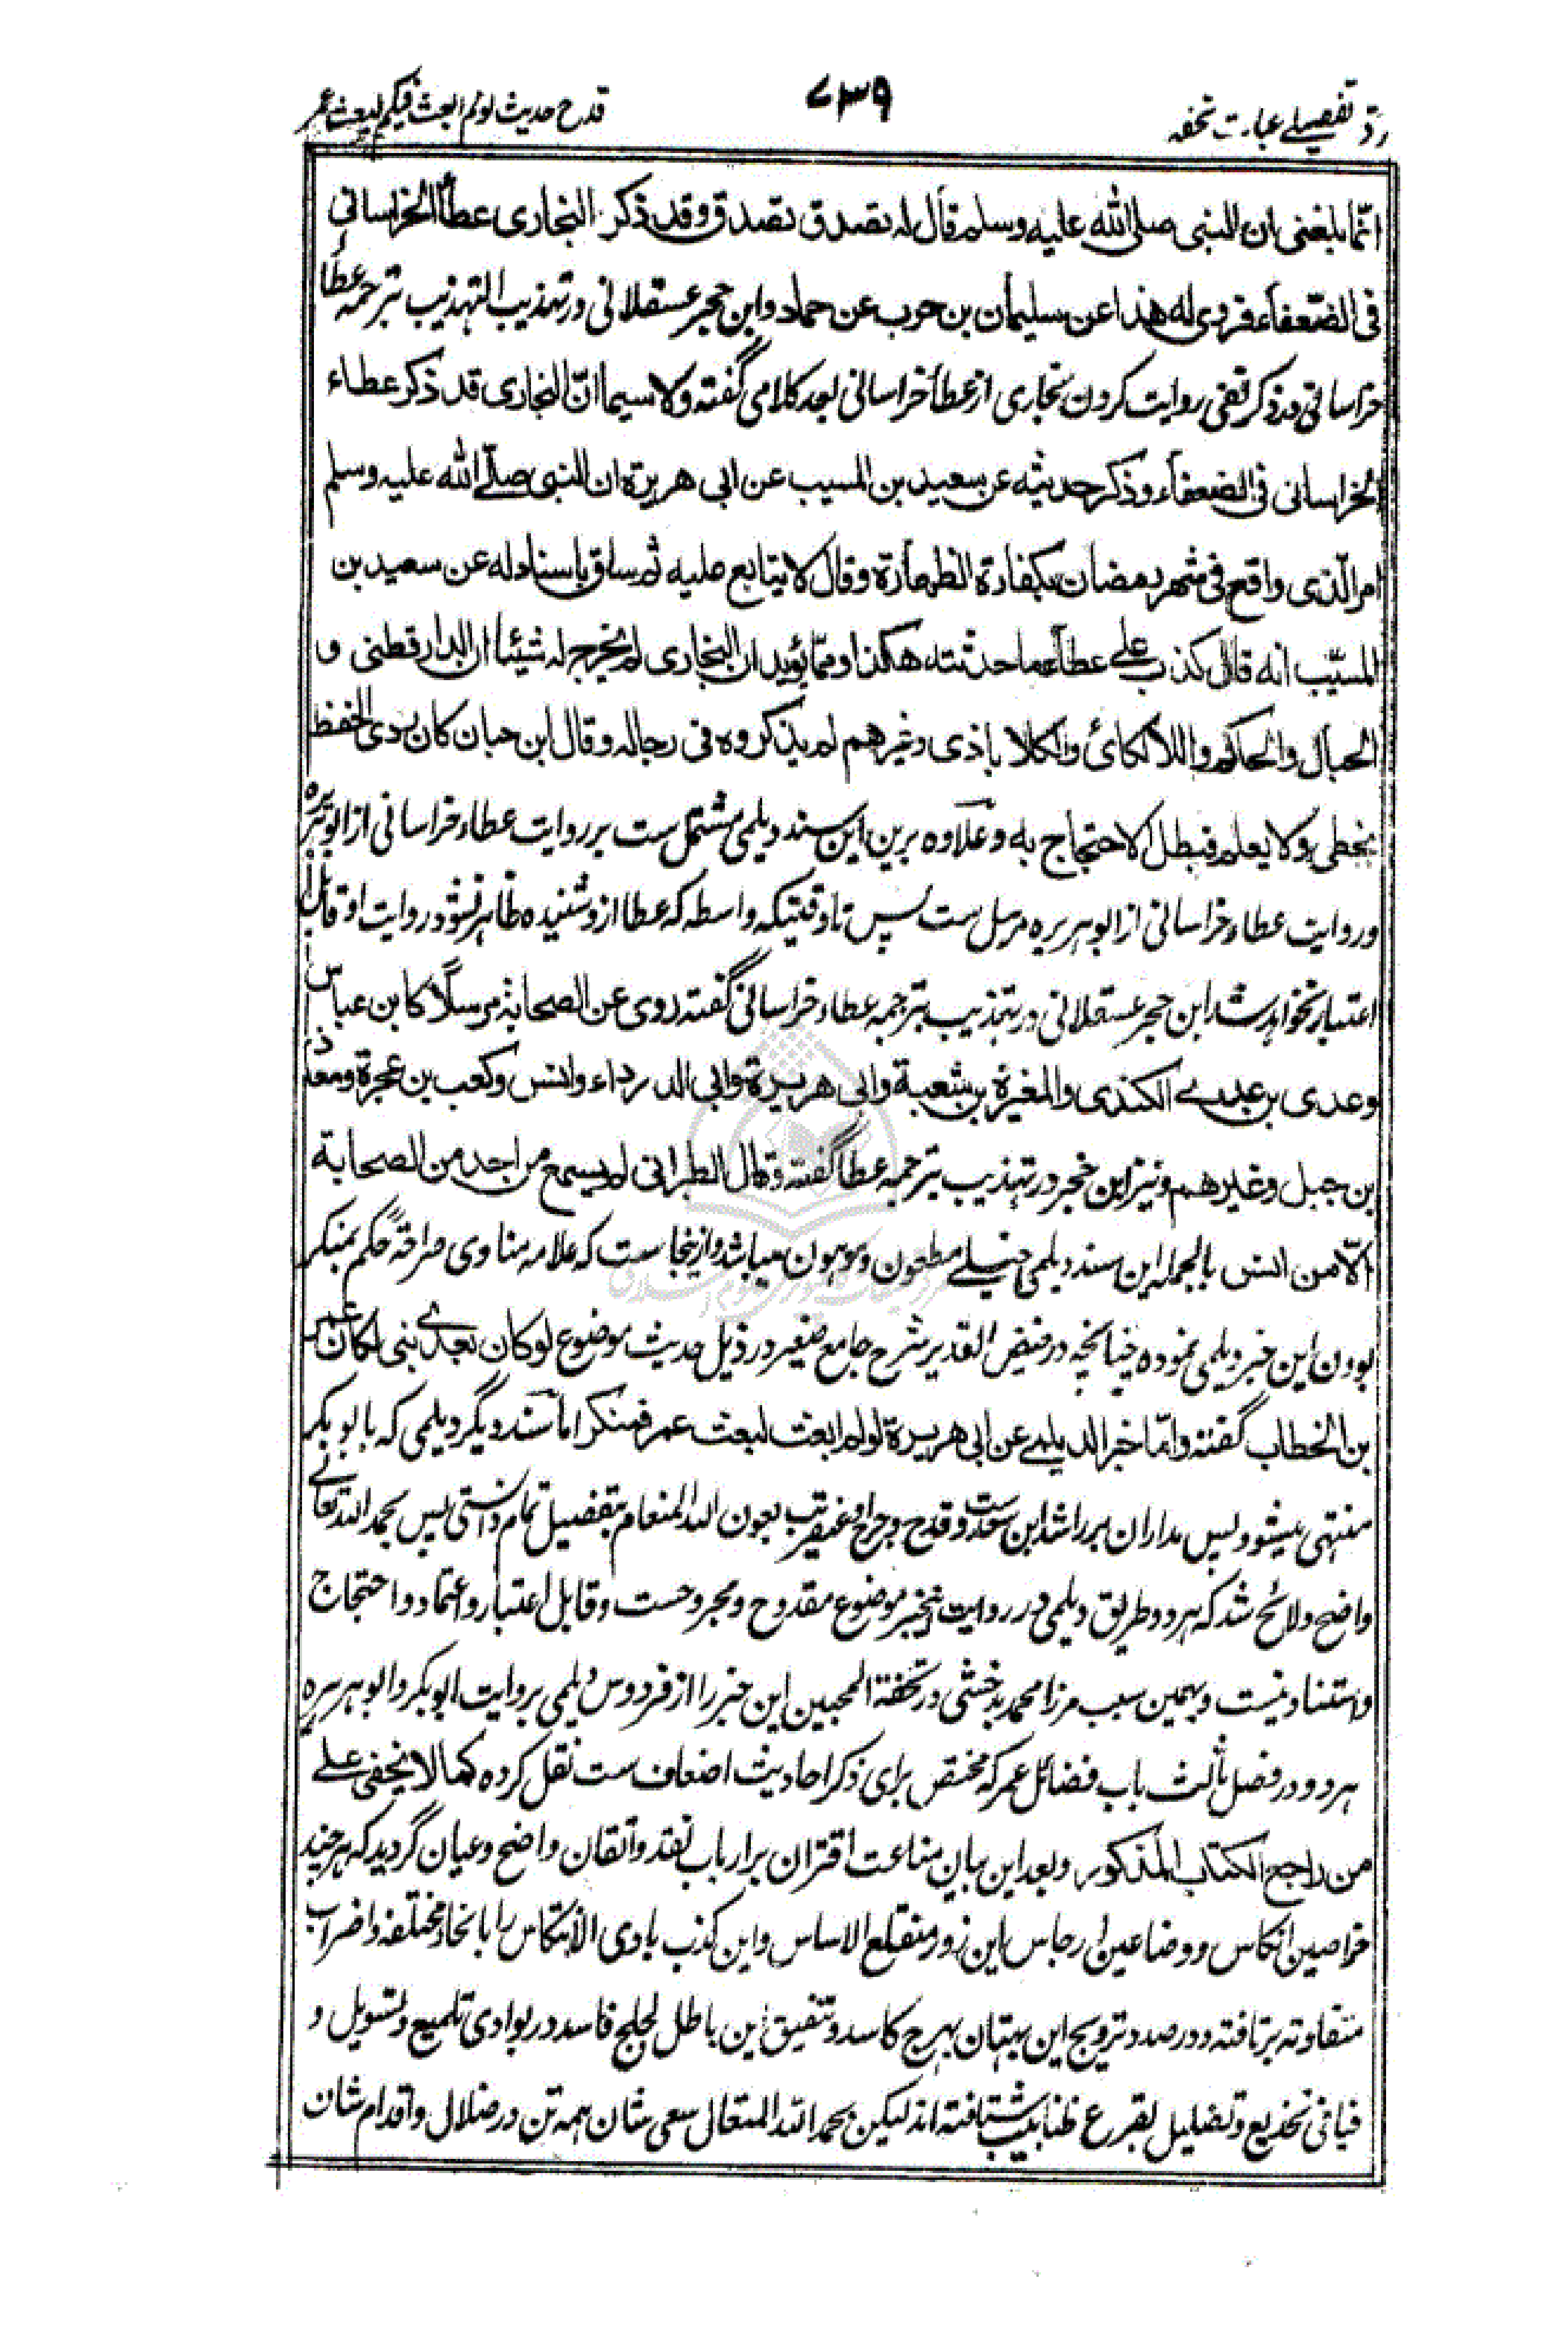 ردّ تفصیلے عبارت تحفہ
۷۳۹
قدح حدیث لو لم ابعث فیکم لبعث عمر
انّما بلغنی ان النبی صلی الله علیه وسلم قال له تصدق تصدق وقد ذکر البخاری عطاء الخراسانی
فی الضّعفاء فروی له هذا عن سلیمان بن حرب عن حماد وابن حجر عسقلانی در تهذیب التهذیب بترجمه عطا
خراسانی در ذکر نفی روایت کردن بخاری از عطا خراسانی بعد کلامی گفته ولا سیما انّ البخاری قد ذکر عطاء
الخراسانی فی الضعفاء وذکر حدیثه عن سعید بن المسیب عن ابی هریرة ان النبی صلے الله علیه وسلم
امر الّذی واقع فی شهر رمضان بکفارة الظهارة وقال لا یتابع علیه ثم ساق باسناد له عن سعید بن
المسیّب انه قال کذب علے عطاء ما حدثته هکذا وممّا یؤید ان البخاری لم یخرج له شیئا ان الدارقطنی و
الحبال والحاکم واللالکائی والکلاباذی وغیرهم لم یذکروه فی رجاله وقال ابن حبان کان ردی الحفظ
یخطی ولا یعلم فبطل الاحتجاج به وعلاوه برین این سند دیلمی مشتمل ست بر روایت عطاء خراسانی از ابو هریره
وروایت عطاء خراسانی از ابو هریره مرسل ست پس تا وقتیکه واسطه که عطا ازو شنیده ظاهر نشود روایت او قابل
اعتبار نخواهد شد ابن حجر عسقلانی در تهذیب بترجمه عطاء خراسانی گفته روی عن الصحابة مرسلًا کابن عباس
وعدی بن عدے الکندی والمغیرة بن شعبة وابی هریرة وابی الدرداء وانس وکعب بن عجرة ومعاذ
بن جبل وغیرهم ونیز ابن حجر در تهذیب بترجمه عطا گفته وقال الطبرانی لم یسمع من احد من الصحابة
الّا من انس بالجمله این سند دیلمی خیلے مطعون وموهون میباشد وازینجاست که علامه مناوی صراحةً حکم بمنکر
بودن این خبر دیلمی نموده چنانچه در فیض القدیر شرح جامع صغیر در ذیل حدیث موضوع لو کان بعدے نبی لکان عمر
بن الخطاب گفته وامّا خبر الدیلمے عن ابی هریرة لو لم ابعث لبعث عمر فمنکر اما سند دیگر دیلمی که بابو بکر
منتهی میشود پس مدار ان بر راشد ابن سعدست وقدح وجرح او عنقریب بعون الله المنعام بتفصیل تمام دانستی پس بحمد الله تعالے
واضح ولائح شد که هر دو طریق دیلمی در روایت این خبر موضوع مقدوح ومجروحست وقابل اعتبار واعتماد واحتجاج
واستناد نیست وبهمین سبب مرزا محمد بدخشی در تحفة المحبین این خبر را از فردوس دیلمی بروایت ابو بکر وابو هریره
هر دو در فصل ثالث باب فضائل عمر که مختص برای ذکر احادیث اضعاف ست نقل کرده کما لا یخفی علے
من راجع الکتاب المذکور وبعد این بیان متانت اقتران بر ارباب نقد واتقان واضح وعیان گردید که هر چند
خراصین انکاس ووضاعین ارجاس این زور منقلع الاساس واین کذب بادی الانتکاس را بانحاء مختلفه واضراب
متفاوته بر تافته ودر صدد ترویج این بهتان بهرج کاسد وتنفیق این باطل لجلج فاسد در بوادی تلمیع وتسویل و
فیافی تخدیع وتضلیل بقرع ظنابیب شتافته اند لیکن بحمد الله المتعال سعی شان همه تن در ضلال واقدام شان